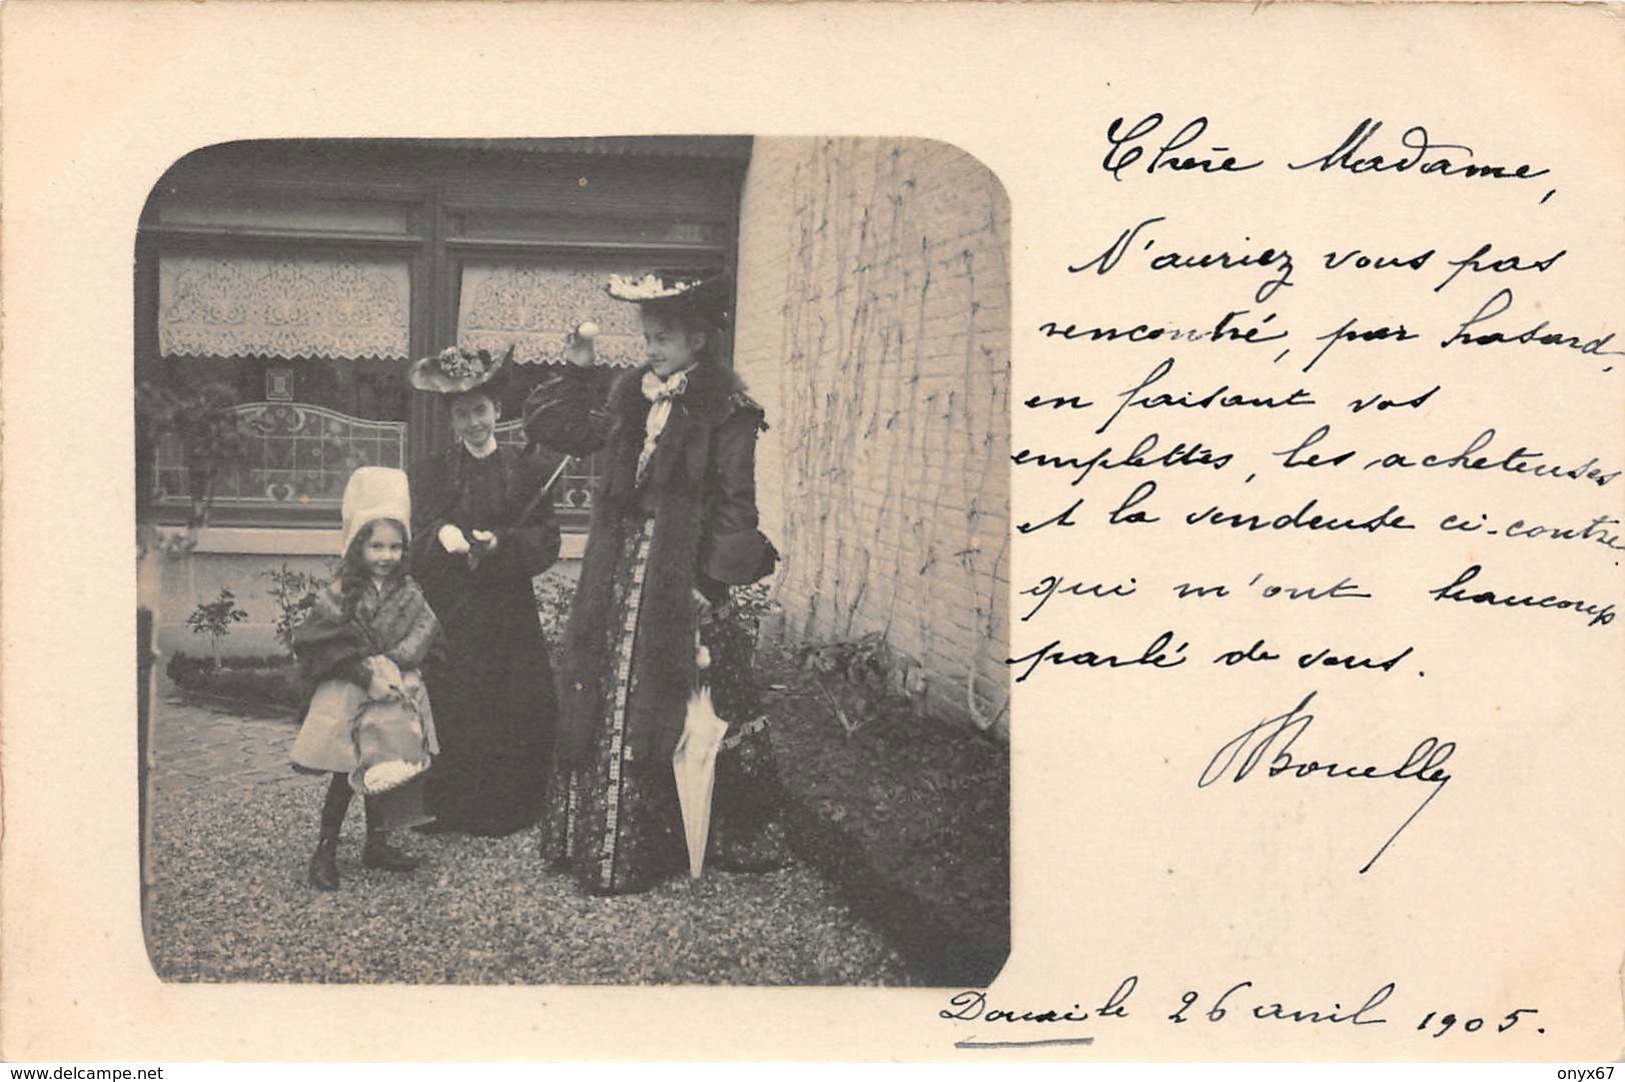 Chère Madame,
N'auriez vous pas
rencontré, par hasard,
en faisant vos
emplettes, les acheteuses
et la vendeuse ci-contre
qui m'ont beaucoup
parlé de vous.
Douai le 26 avril 1905.
www.delcampe.net
onyx67